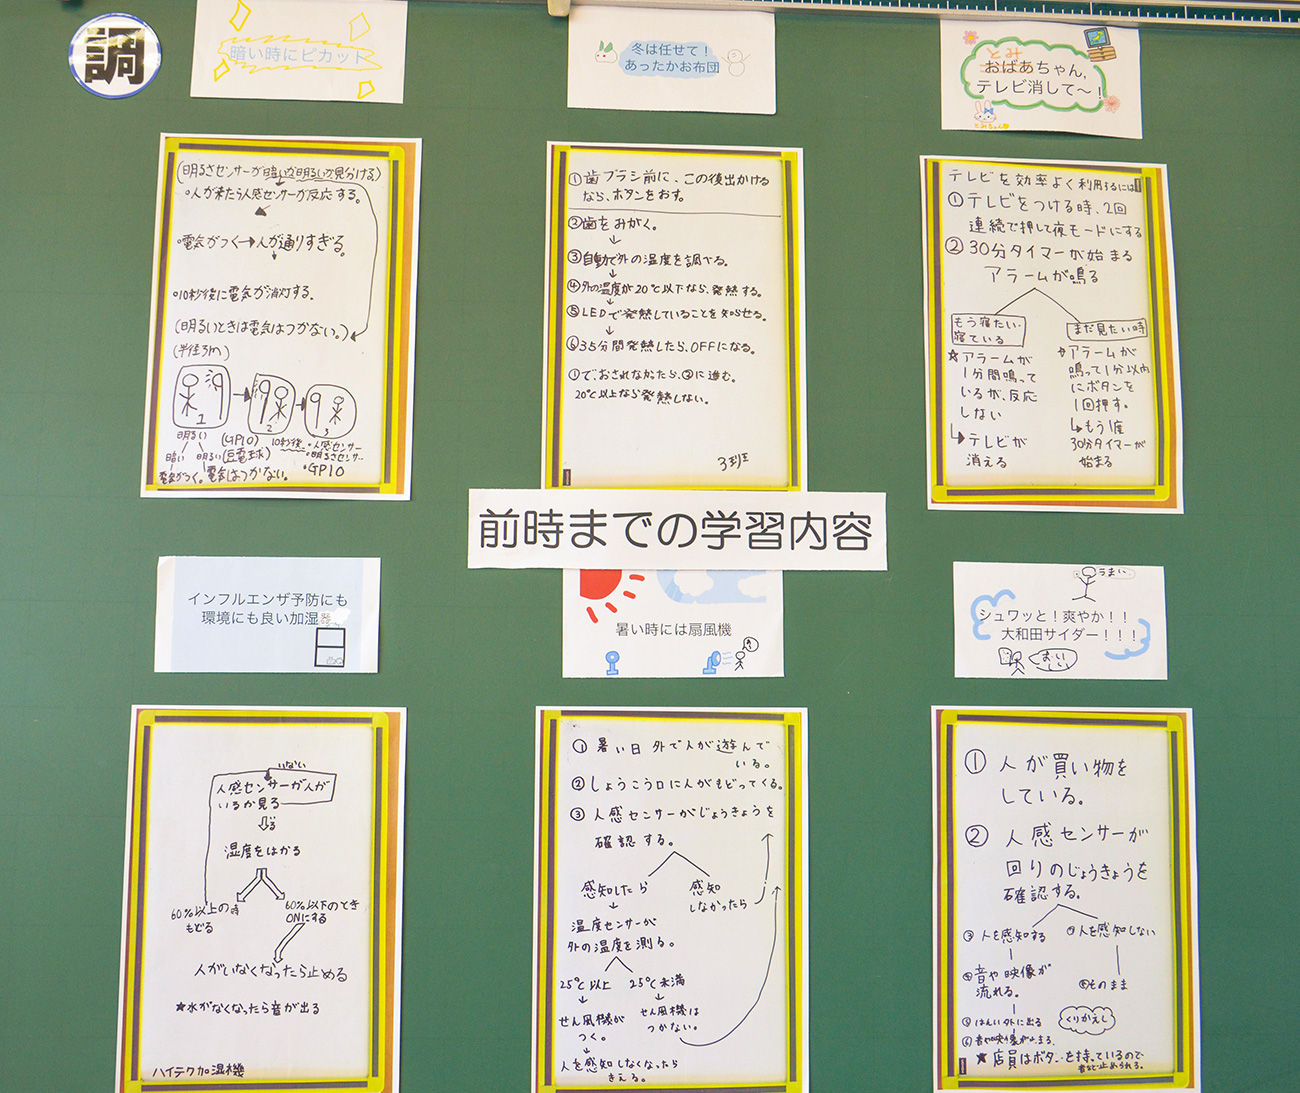 調
暗い時にピカット
(明るさセンサーが暗いか明るいか見分ける)
・人が来たら人感センサーが反応する。
・電気がつく→人が通りすぎる。
・10秒後に電気が消灯する.
(明るいときは電気はつかない。)
(半径3m)
1
2
3
明るい
暗い
明るい
電気がつく。電気はつかない。
(GPIO)
(豆電球)
10秒後
・人感センサー
・明るさセンサー
・GPIO
冬は任せて！
あったかお布団
①歯ブラシ前に、この後出かける
なら、ボタンをおす。
②歯をみがく。
↓
③自動で外の温度を調べる。
↓
④外の温度が20℃以下なら、発熱する。
↓
⑤LEDで発熱していることを知らせる。
↓
⑥35分間発熱したら、OFFになる。
①で、おされなかったら、②に進む。
20℃以上なら発熱しない。
3班
とみ
おばあちゃん,
テレビ消して〜！
とみちゃん
テレビを効率よく利用するには
①テレビをつける時、2回
連続で押して夜モードにする
②30分タイマーが始まる
アラームが鳴る
もう寝たい・
寝ている
★アラームが
1分間鳴って
いるが、反応
しない
↳テレビが
消える
まだ見たい時
アラームが
鳴って1分以内
にボタンを
1回押す。
↳もう1度
30分タイマーが
始まる
前時までの学習内容
インフルエンザ予防にも
環境にも良い加湿器
いない
人感センサーが人が
いるか見る
いる
湿度をはかる
60%以上の時
もどる
60%以下のとき
ONにする
人がいなくなったら止める
★水がなくなったら音が出る
ハイテク加湿機
暑い時には扇風機
①暑い日外で人が遊んで
いる。
②しょうこう口に人がもどってくる。
③人感センサーがじょうきょうを
確認する。
感知したら
↓
温度センサーが
外の温度を測る。
感知
しなかったら
25℃以上
↓
せん風機が
つく。
↓
人を感知しなくなったら
きえる。
25℃未満
↓
せん風機は
つかない。
うまい
シュワッと！爽やか！！
大和田サイダー！！！
おいしい
①人が買い物を
している。
②人感センサーが
回りのじょうきょうを
確認する。
③人を感知する
④音や映像が
流れる。
⑤はんい外に出る
人を感知しない
そのまま
くりかえし
★店員はボタンを持っているので